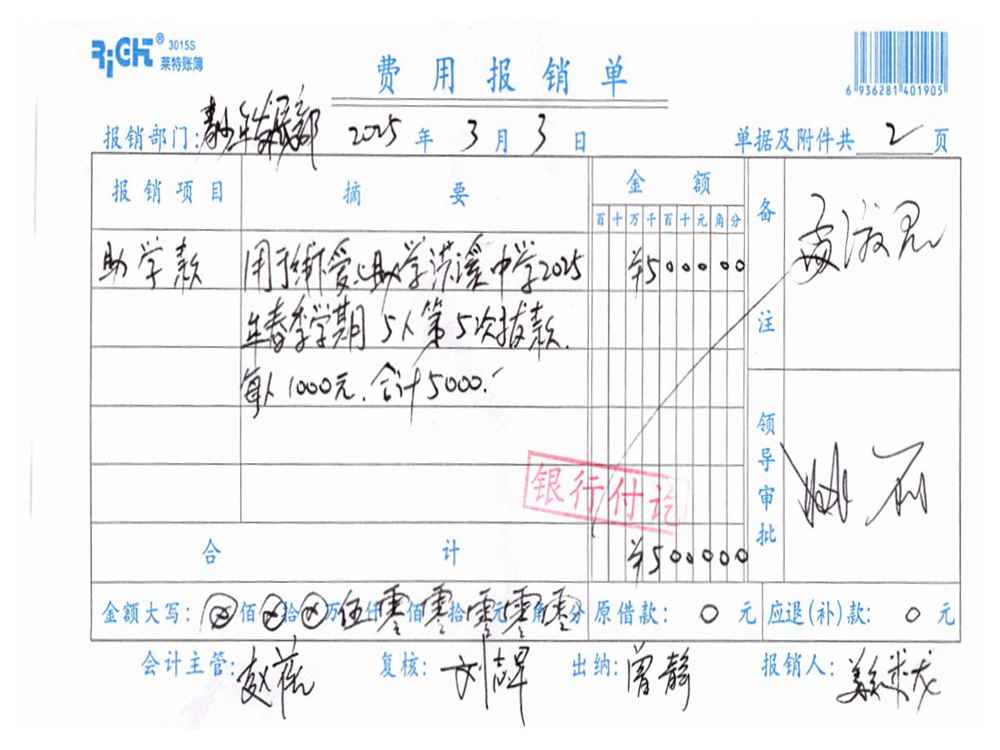 RiCH® 3015S
莱特账簿
费用报销单
6 936281 401905
报销部门: 青少年发展部 2025 年 3 月 3 日 单据及附件共 2 页
报销项目 摘要 金额 备注
百 十 万 千 百 十 元 角 分
助学款 用于 爱心助学 溪中学2025 ¥5000.00
年春季学期 5人第5次拨款.
每人1000元.合计5000.-
领导审批
银行付讫
合计 ¥5000.00
金额大写: ⊗佰⊗拾⊗万伍仟零佰零拾零元零角零分 原借款: 0 元 应退(补)款: 0 元
会计主管: 赵 复核: 刘 出纳: 曾静 报销人: 龙